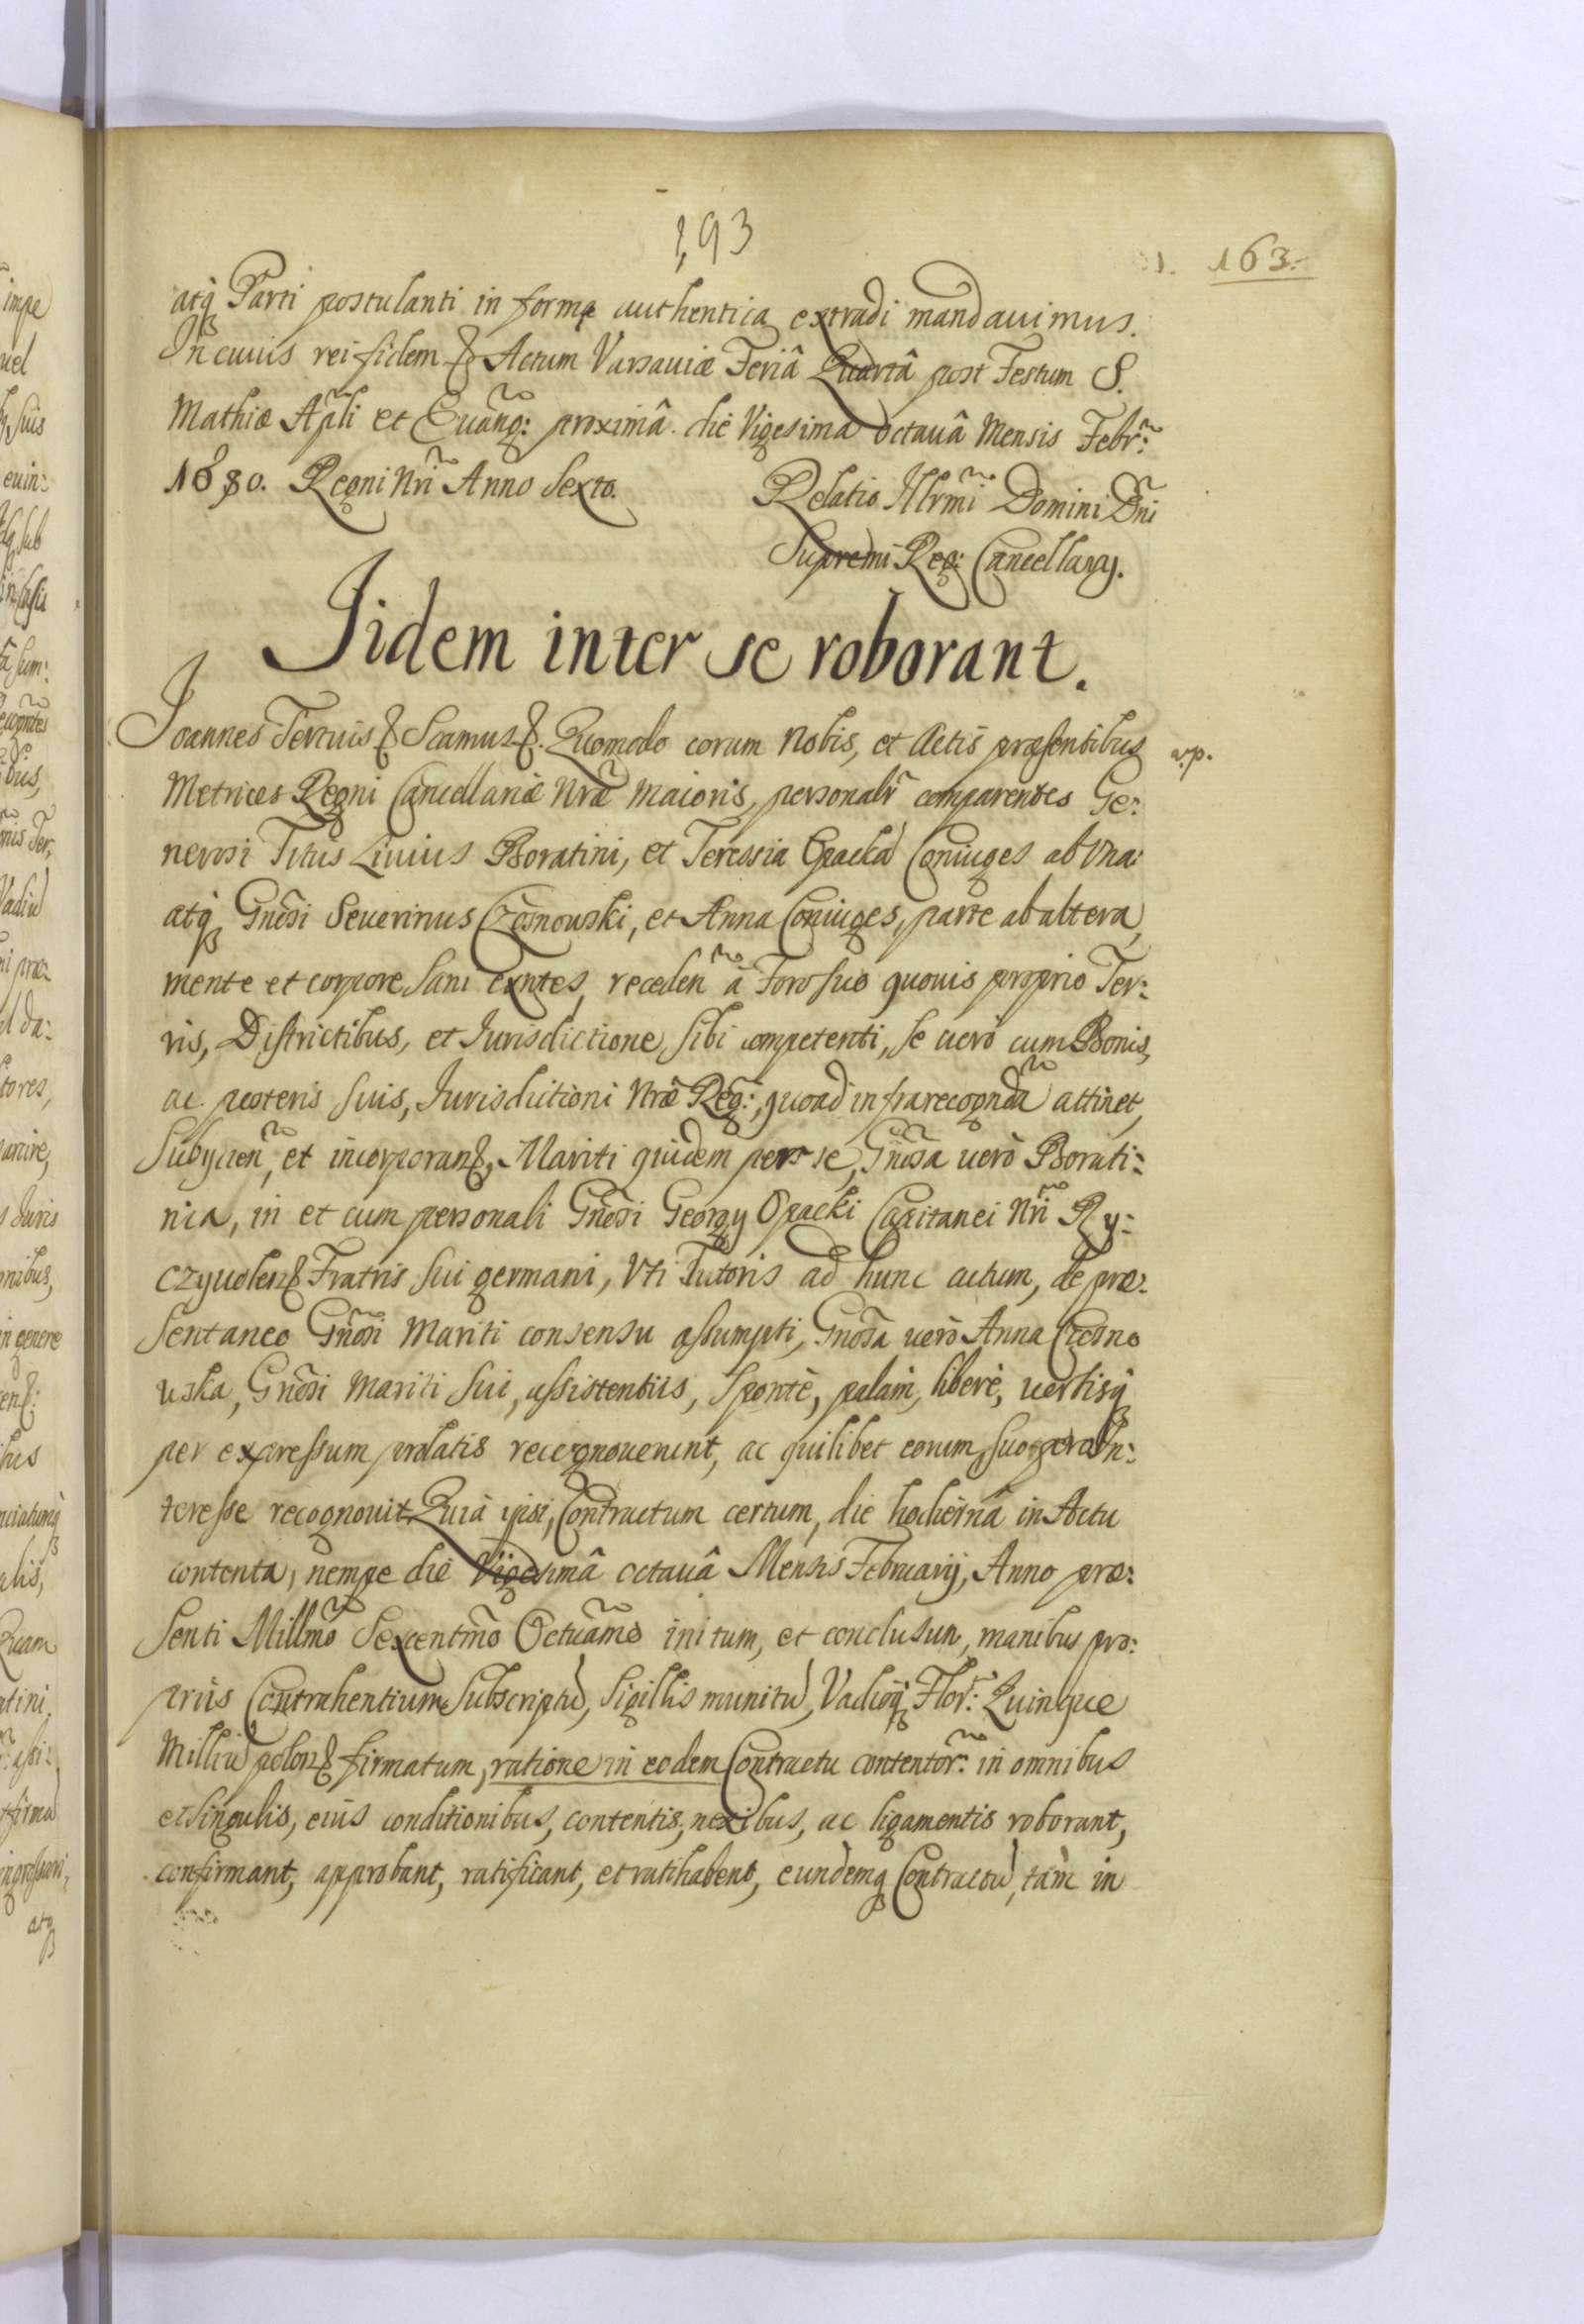 193
163.
atq Parti postulanti in forma authentica extradi mandauimus.
In cuius rei fidem & Actum Varsauiæ Feriâ Quartâ post Festum S.
Mathiæ Apli et Euang: proximâ die Vigesima octauâ Mensis Febr:
1680. Regni Nri Anno Sexto.
Relatio Illrmi Domini Dni
Supremi Reg: Cancellarij.
Iidem inter se roborant.
Ioannes Tertius & Scamus &. Quomodo coram Nobis, et Actis præsentibus
Metrices Regni Cancellariæ Nræ maioris, personalr comparentes Ge:
nerosi Titus Liuius Boratini, et Teressia Opacka Coniuges ab Vna:
atq Gnosi Seuerinus Czosnowski, et Anna Coniuges, parte ab altera,
mente et corpore sani exntes, receden à Foro suo quouis proprio Ter:
ris, Districtibus, et Iurisdictione sibi competenti, se uerò cum Bonis,
ac posteris suis, Iurisdictioni Nræ Reg:, quoad infrarecognda attinet,
Subijcien, et incorporan&, Mariti quidem per se, Gnosa uerò Borati:
nia, in et cum personali Gnosi Georgy Opacki Capitanei Nri Ry:
czyuolen& Fratris sui germani, Vti Tutoris ad hunc actum, de præ:
sentaneo Gnosi Mariti consensu assumpti, Gnosa uerò Anna Czosno
uska, Gnosi mariti sui, assistentiis, Spontè, palàm, liberè, uerbisq
per expressum prolatis recognouerunt, ac quilibet eorum, suo pro In:
teresse recognouit, Quia ipsi, Contractum certum, die hodiernâ in Actu
contenta, nempe die Vigesimâ octauâ Mensis Februarij, Anno præ:
senti Millmo Sexcentmo Octuamo initum, et conclusum, manibus pro:
priis Contrahentium Subscriptu, Sigillis munitu, Vadioq Flor: Quinque
Milliu polon& firmatum, ratione in eodem Contractu contentor: in omnibus
et singulis, eius conditionibus, contentis, nexibus, ac ligamentis roborant,
confirmant, approbant, ratificant, et ratihabent, eundemq Contractu, tàm in